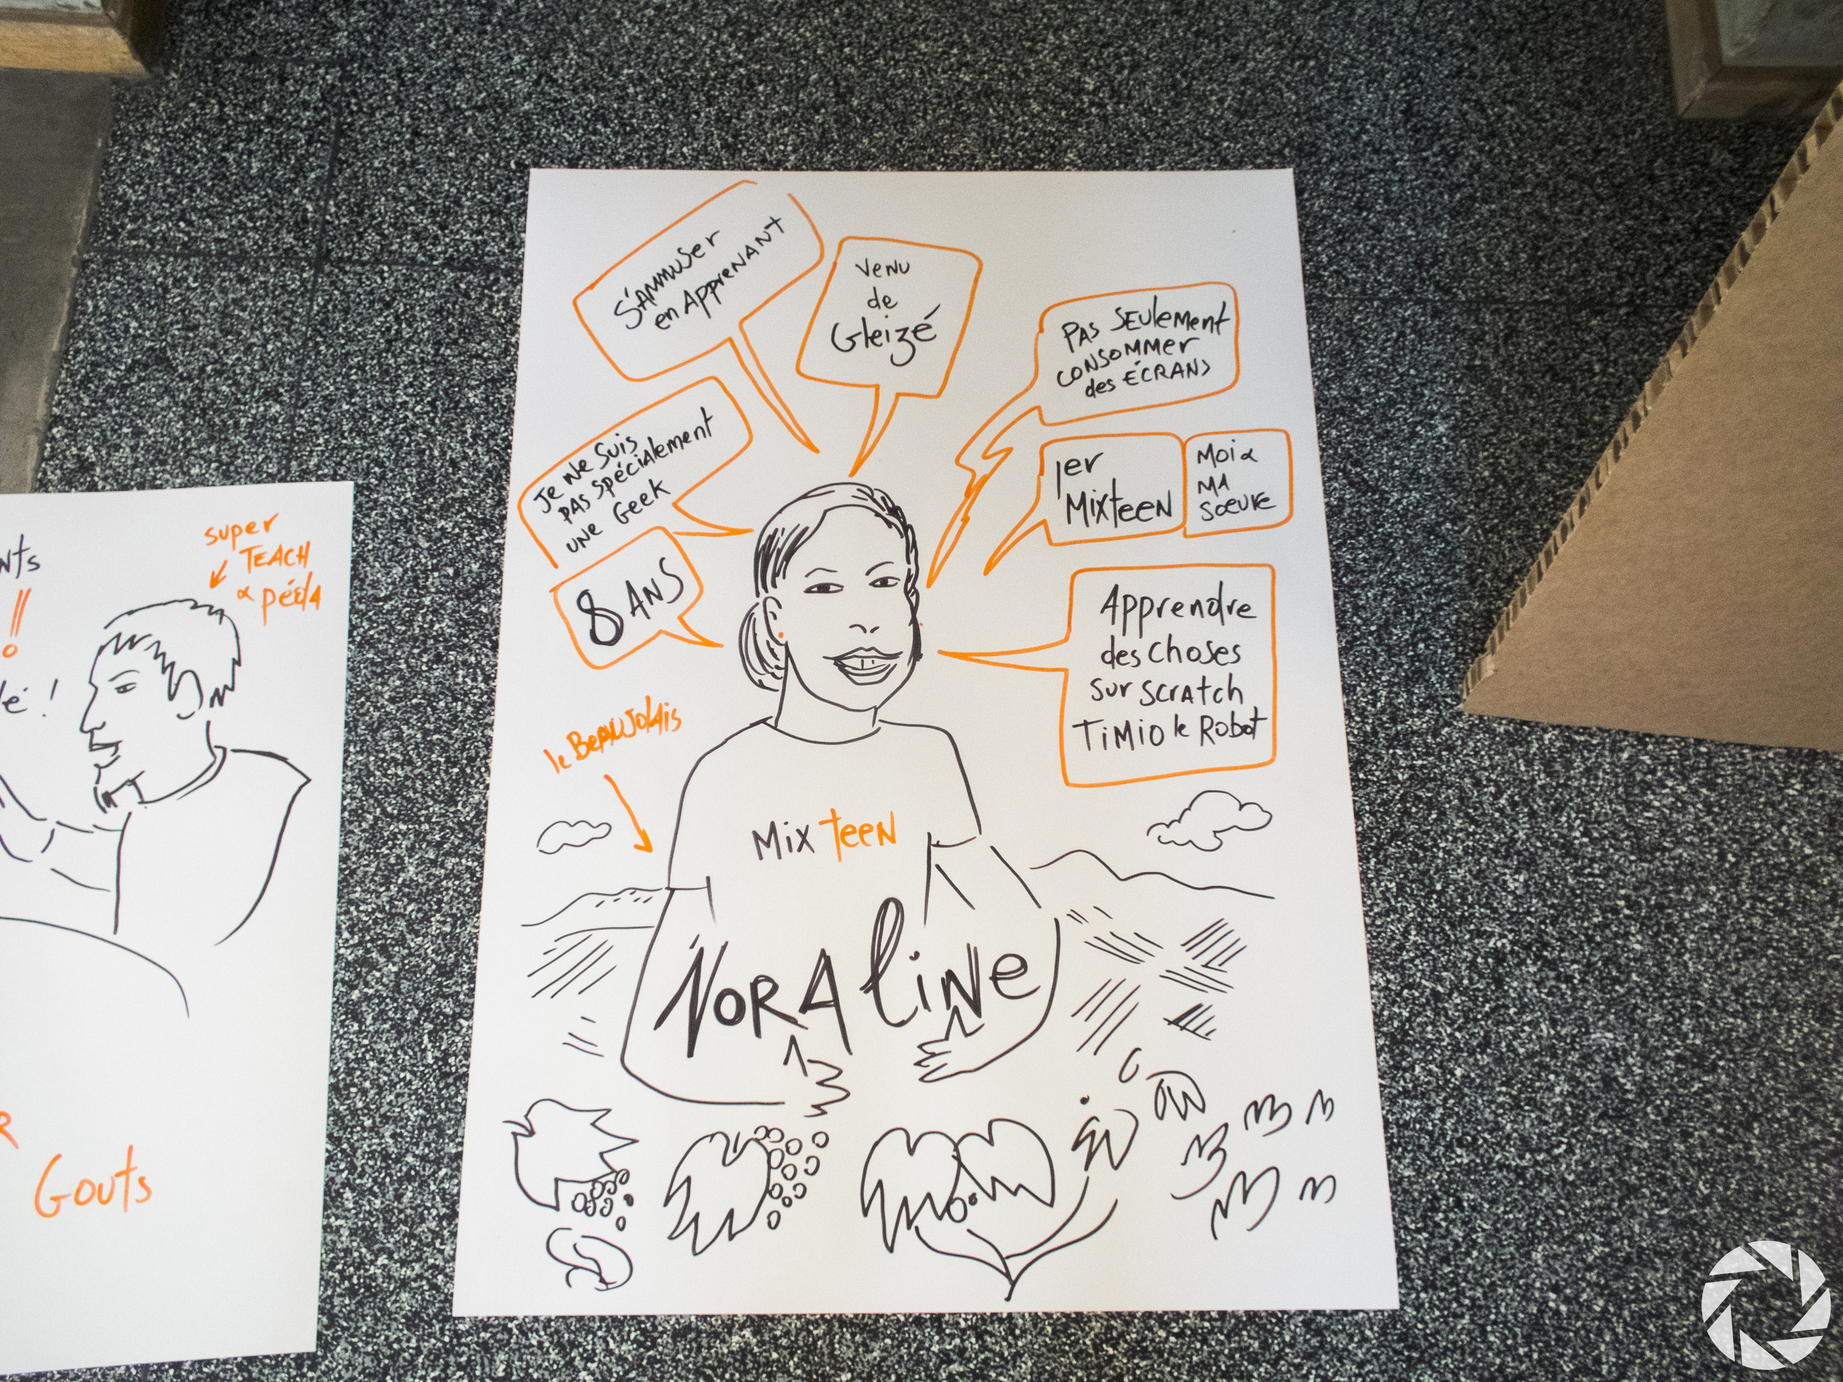 S'AMMUSer
en Apprenant
Venu
de
Gleizé
PAS SEULement
CONSOMMER
des ÉCRANS
Je ne suis
pas spécialement
une Geek
1er
Mixteen
Moi &
MA
Soeure
8 ANS
Apprendre
des choses
sur Scratch
TiMiO le Robot
le Beaujolais
Mix teen
NORAline
nts
super
TEACH
& péda
!!
é !
R
Gouts